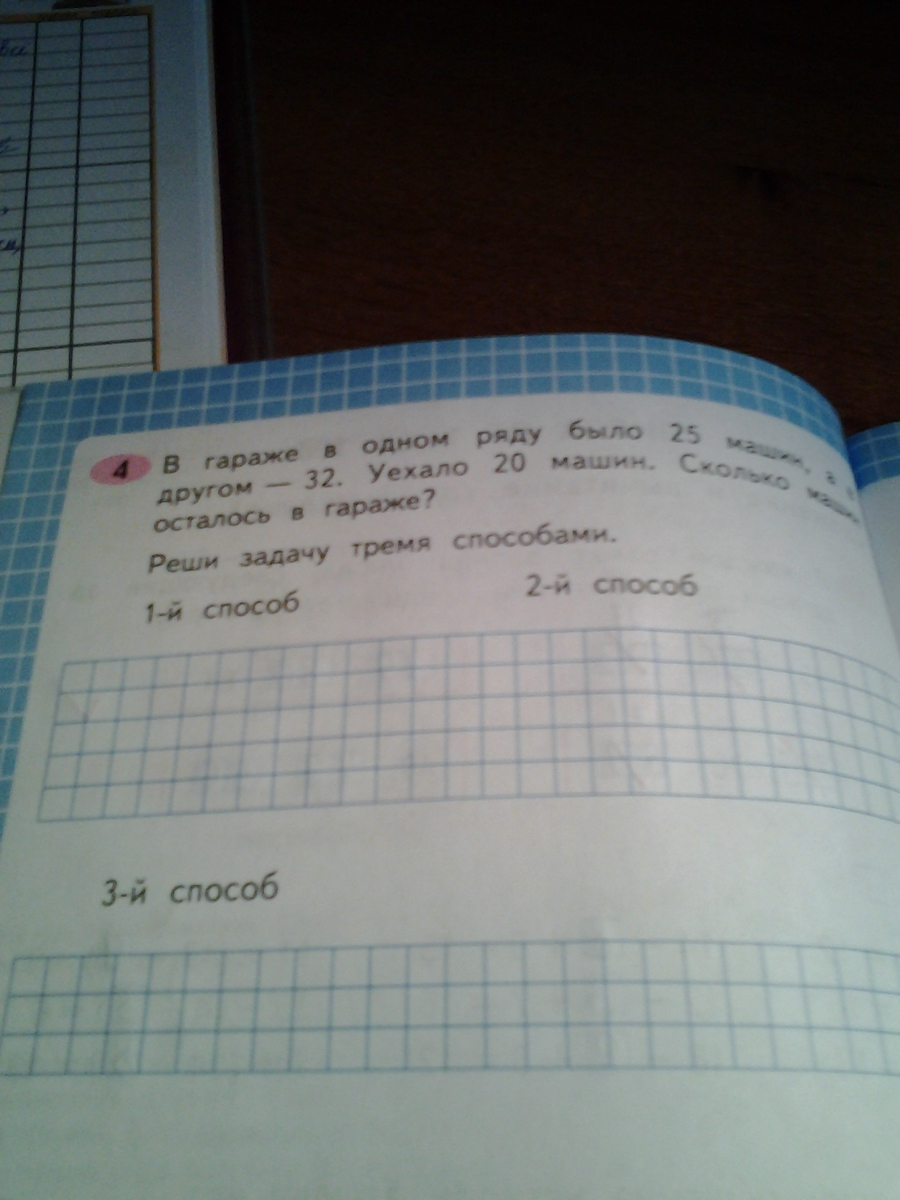 4 В гараже в одном ряду было 25 машин, а в
другом — 32. Уехало 20 машин. Сколько машин
осталось в гараже?
Реши задачу тремя способами.
1-й способ
2-й способ
3-й способ